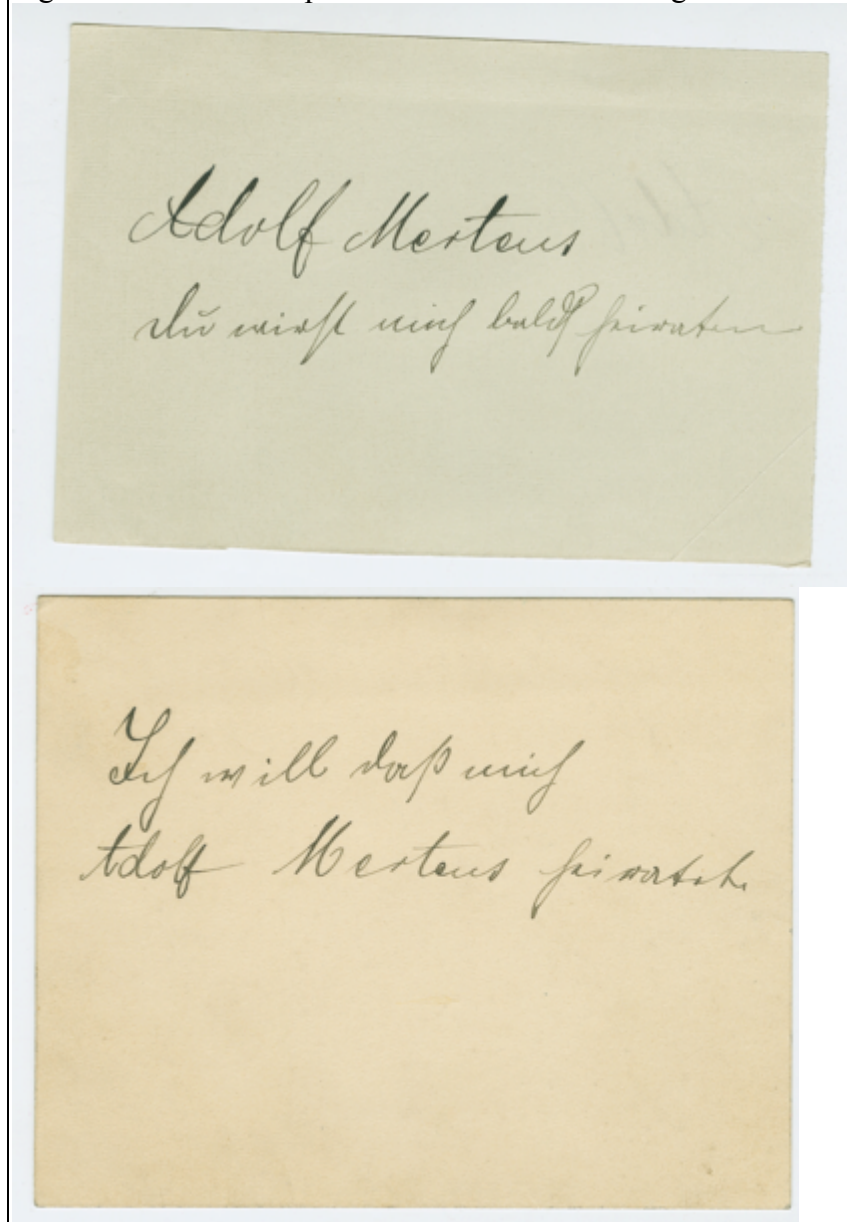 Adolf Mertens
Du wirst mich bald heiraten
Ich will daß mich
Adolf Mertens heiratet.